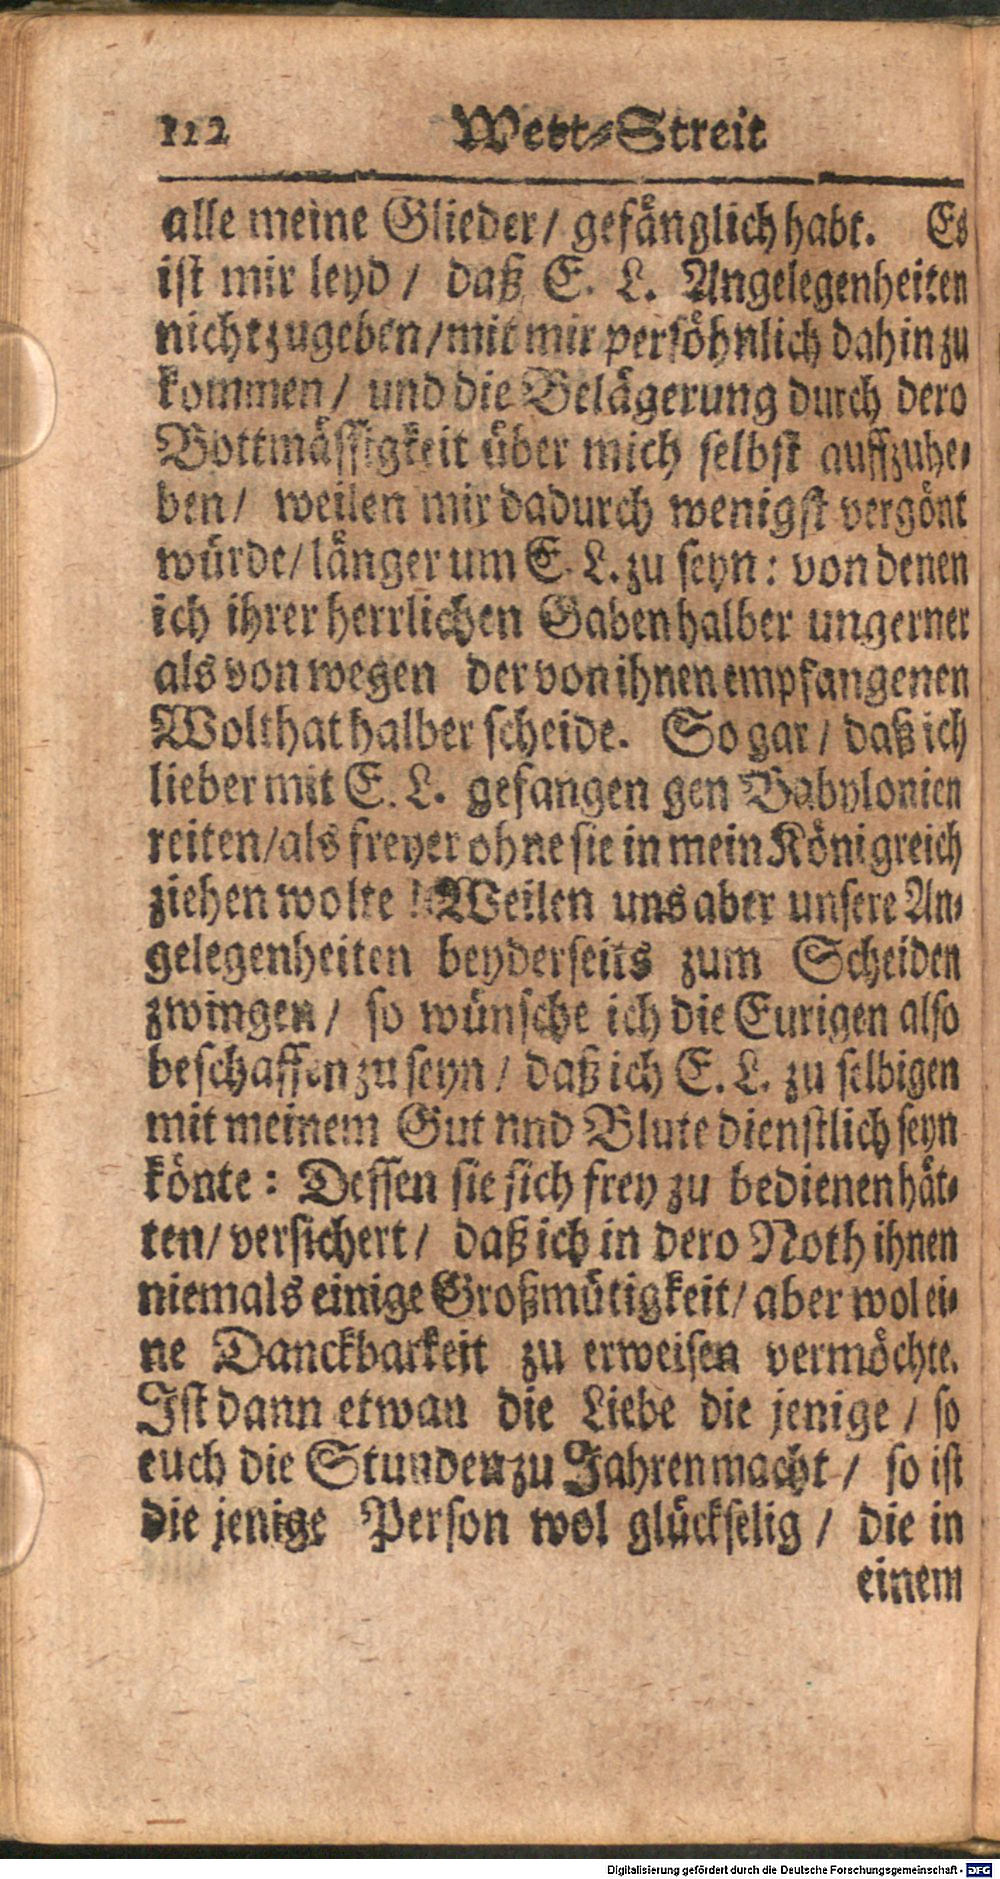 112 Wett-Streit
alle meine Glieder/ gefänglich habt. Es
ist mir leyd / daß E. L. Angelegenheiten
nicht zugeben/mit mir persöhnlich dahin zu
kommen/ und die Belägerung durch dero
Bottmässigkeit über mich selbst auffzuhe-
ben/ weilen mir dadurch wenigst vergönt
würde/ länger um E. L. zu seyn: von denen
ich ihrer herrlichen Gaben halber ungerner
als von wegen der von ihnen empfangenen
Wolthat halber scheide. So gar / daß ich
lieber mit E. L. gefangen gen Babylonien
reiten/als freyer ohne sie in mein Königreich
ziehen wolte ! Weilen uns aber unsere An-
gelegenheiten beyderseits zum Scheiden
zwingen / so wünsche ich die Eurigen also
beschaffen zu seyn / daß ich E. L. zu selbigen
mit meinem Gut nnd Blute dienstlich seyn
könte: Dessen sie sich frey zu bedienen hät-
ten/ versichert / daß ich in dero Noth ihnen
niemals einige Großmütigkeit/ aber wol ei-
ne Danckbarkeit zu erweisen vermöchte.
Ist dann etwan die Liebe die jenige / so
euch die Stunden zu Jahren macht / so ist
die jenige Person wol glückselig / die in
einem
Digitalisierung gefördert durch die Deutsche Forschungsgemeinschaft - DFG